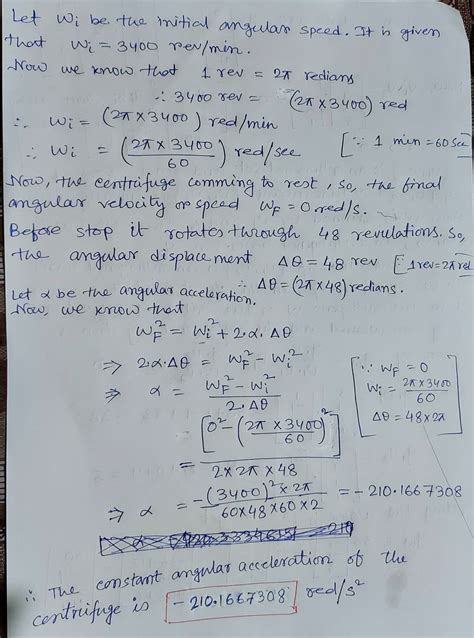 Let wi be the initial angular speed. It is given
that wi = 3400 rev/min.
Now we know that 1 rev = 2π redians
∴ 3400 rev = (2π × 3400) red
∴ wi = (2π × 3400) red/min
∴ wi = (2π × 3400 / 60) red/sec [∵ 1 min = 60 Sec
Now, the centrifuge comming to rest, so, the final
angular velocity or speed wF = 0 red/s.
Before stop it rotates through 48 revulations. So,
the angular displacement Δθ = 48 rev [1 rev = 2π red
∴ Δθ = (2π × 48) redians.
Let α be the angular acceleration.
Now, we know that
wF² = wi² + 2.α.Δθ
⇒ 2.α.Δθ = wF² - wi²
⇒ α = (wF² - wi²) / 2.Δθ
[∵ wF = 0
wi = 2π × 3400 / 60
Δθ = 48 × 2π]
= [0² - (2π × 3400 / 60)²] / 2 × 2π × 48
⇒ α = -(3400)² × 2π / 60 × 48 × 60 × 2 = -210.1667308
∴ The constant angular acceleration of the
centrifuge is -210.1667308 red/s²